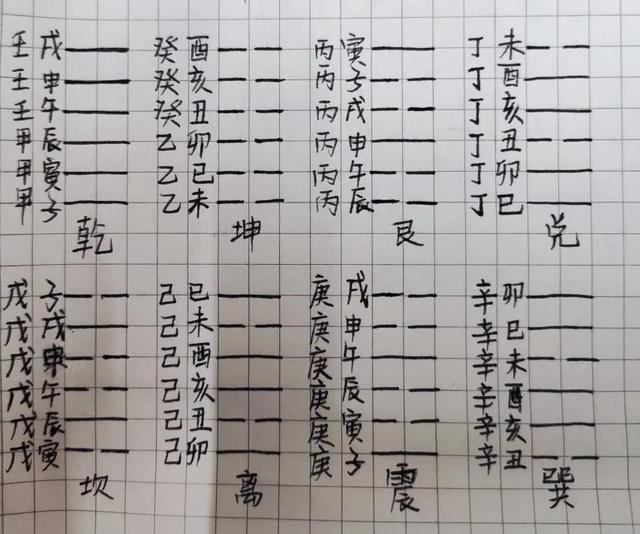 壬戌 癸酉 丙寅 丁未
壬申 癸亥 丙子 丁酉
壬午 癸丑 丙戌 丁亥
甲辰 乙卯 丙申 丁丑
甲寅 乙巳 丙午 丁卯
甲子 乙未 丙辰 丁巳
乾 坤 艮 兑
戊子 己巳 庚戌 辛卯
戊戌 己未 庚申 辛巳
戊申 己酉 庚午 辛未
戊午 己亥 庚辰 辛酉
戊辰 己丑 庚寅 辛亥
戊寅 己卯 庚子 辛丑
坎 离 震 巽